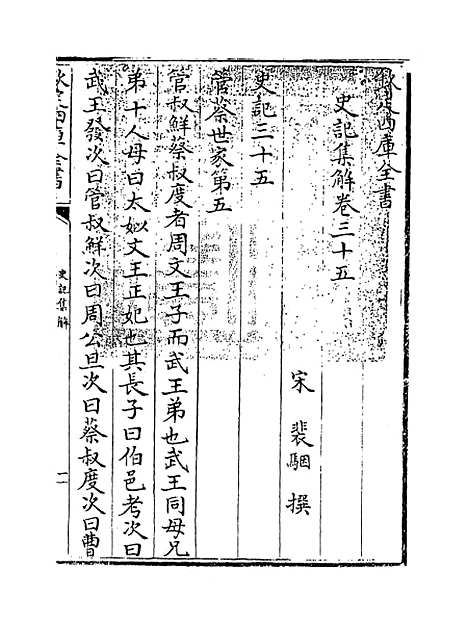 欽定四庫全書
史記集解卷三十五
宋 裴駰 撰
史記三十五
管蔡世家第五
管叔鮮蔡叔度者周文王子而武王弟也武王同母兄
弟十人母曰太姒文王正妃也其長子曰伯邑考次曰
武王發次曰管叔鮮次曰周公旦次曰蔡叔度次曰曹
欽定四庫全書
史記集解